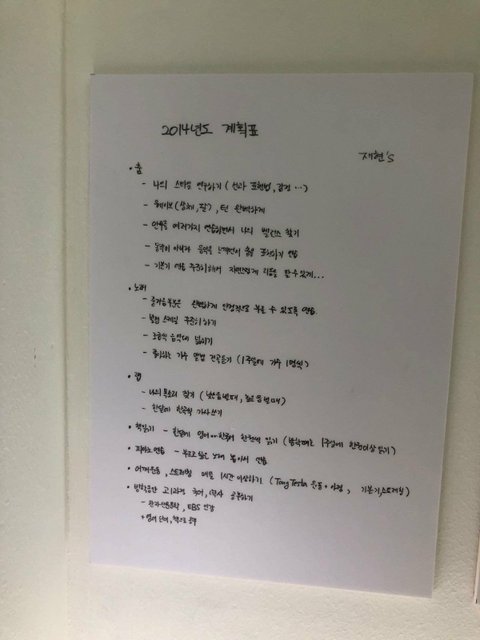 2014년도 계획표
재현's
• 춤
- 나의 스타일 연구하기 (선과 표현법, 감정 …)
- 웨이브 (상체, 팔), 턴 완벽하게
- 안무를 여러가지 연습하면서 나의 밸런스 찾기
- 음악의 느낌을 표현하기 연습
- 기본기 연습 꾸준히해서 자연스럽게 리듬을 탈 수 있게…
• 노래
- 완벽하게 안정적으로 부를 수 있도록 연습
- 발성 스케일 꾸준히 하기
- 조금씩 음역대 넓히기
- 좋아하는 가수 앨범 전곡듣기 (1주일에 가수 1명씩)
• 랩
- 나의 목소리 찾기 (낮을때, 높을때)
- 한달에 한곡씩 가사쓰기
• 책읽기 - 한달에 한권씩 읽기 (방학때는 1주일에 한권이상 읽기)
• 피아노 연습 - 부르고 싶은 노래 뽑아서 연습
• 어깨운동, 스트레칭 매일 1시간 이상하기 (Tony Testa 운동, 기본기, 스트레칭)
• 방학동안 고1과정 국어, 역사 공부하기
- EBS 인강
+ 영어 단어, 책으로 공부